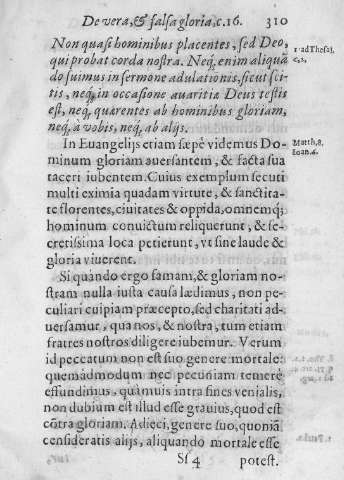 De vera, & falsa gloria, c. 16. 310
Non quasi hominibus placentes, sed Deo,
qui probat corda nostra. Neq; enim aliquā
do fuimus in sermone adulationis, sicut sci-
tis, neq; in occasione auaritiæ Deus testis
est, neq; quærentes ab hominibus gloriam,
neq; a vobis, neq; ab alijs.
1. ad Thess.
c. 2,
In Euangelijs etiam sæpè videmus Do-
minum gloriam auersantem, & facta sua
taceri iubentem. Cuius exemplum secuti
multi eximia quadam virtute, & sanctita-
te florentes, ciuitates & oppida, omnemq;
hominum conuictum reliquerunt, & se-
cretissima loca petierunt, vt sine laude &
gloria viuerent.
Matth. 8.
Ioan. 6.
Si quando ergo famam, & gloriam no-
stram nulla iusta causa lædimus, non pe-
culiari cuipiam præcepto, sed charitati ad-
uersamur, qua nos, & nostra, tum etiam
fratres nostros diligere iubemur. Verum
id peccatum non est suo genere mortale:
quemadmodum nec pecuniam temerè
effundimus, quāmuis intra fines venialis,
non dubium est illud esse grauius, quod est
cōtra gloriam. Adieci, genere suo, quoniā
consideratis alijs, aliquando mortale esse
Sf 4 potest.